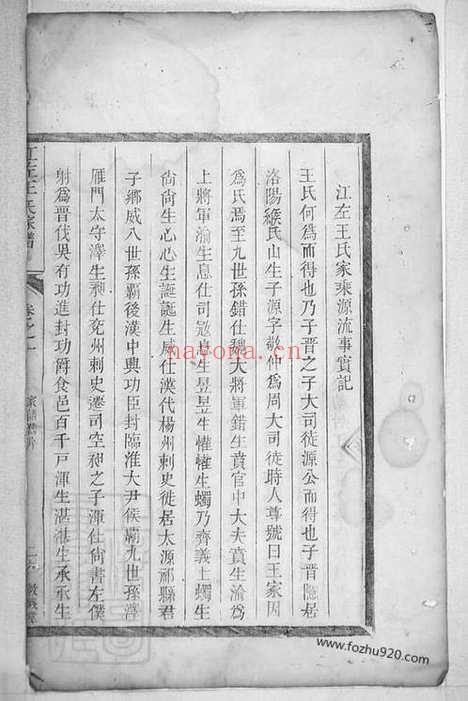 江左王氏家乘源流事實記
王氏何爲而得也乃子晉之子大司徒源公而得也子晉隱居
洛陽緱氏山生子源字敬仲爲周大司徒時人尊號曰王家因
爲氏焉至九世孫錯仕魏大將軍錯生賁官中大夫賁生渝爲
上將軍渝生息仕司寇息生昱昱生懽懽生蠋乃齊義上蠋生
尙尙生心心生誕誕生威仕漢代楊州刺史徙居太源祁縣君
子鄉威八世孫霸後漢中興功臣封臨淮大尹侯霸九世孫
雁門太守澤生昶仕兗州刺史遷司空昶之子渾仕尙書左僕
射爲晉伐吳有功進封功爵食邑百千戸渾生湛湛生承承生
江左王氏家譜
卷之一
nayona.cn
www.fozhu920.com